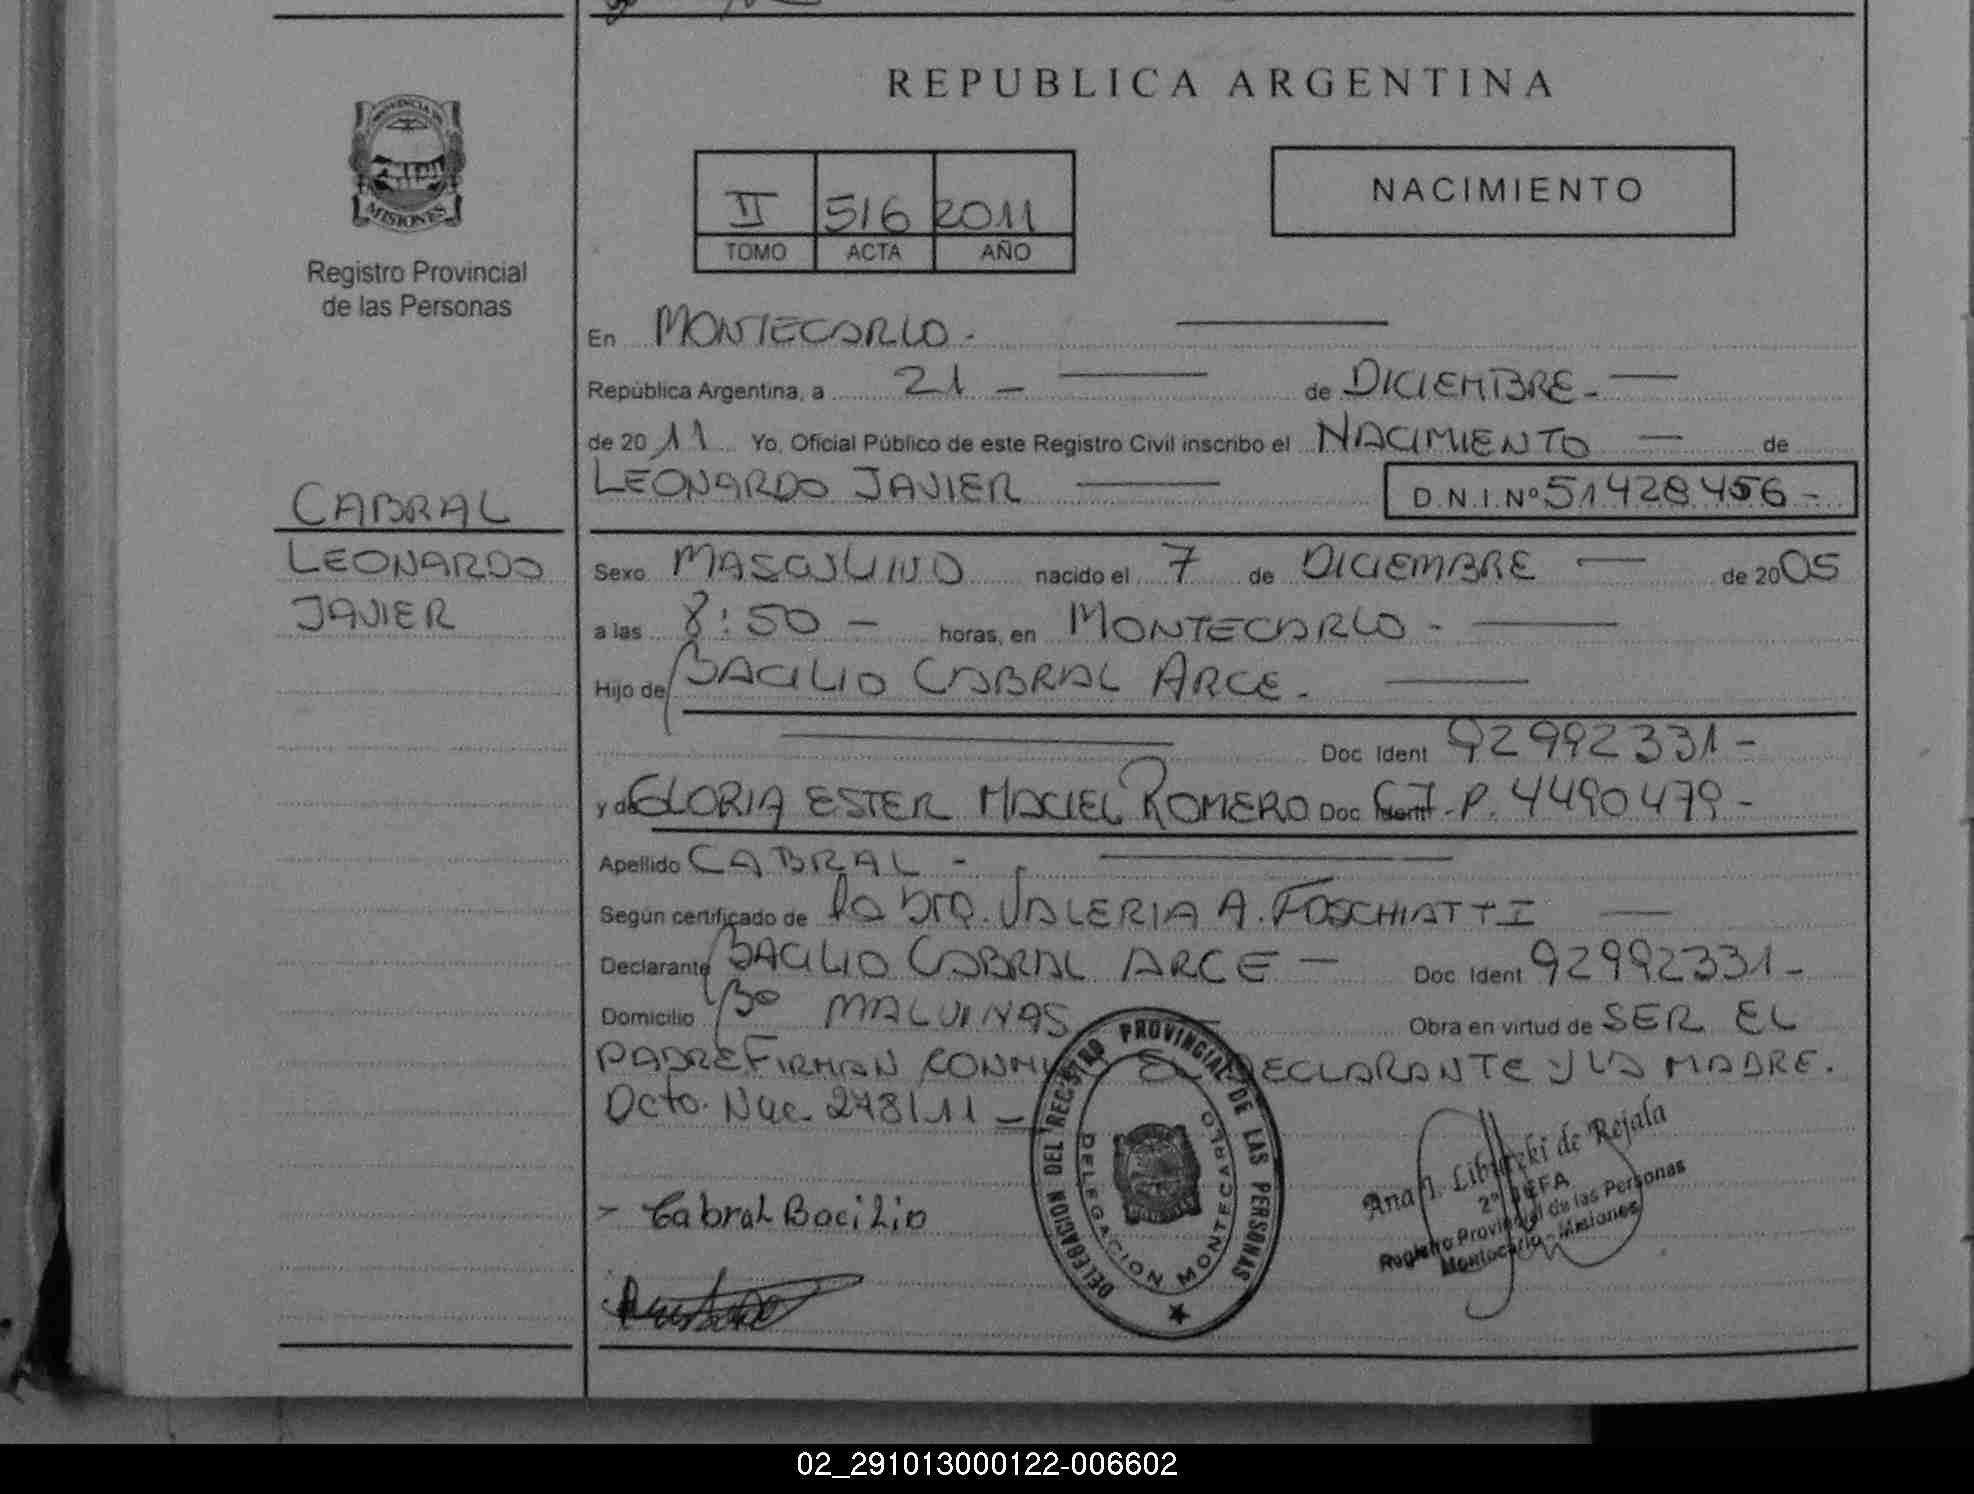 REPUBLICA ARGENTINA
PROVINCIA DE
MISIONES
Registro Provincial
de las Personas
II 516 2011
TOMO ACTA AÑO
NACIMIENTO
En MONTECARLO.
República Argentina, a 21 - de DICIEMBRE.-
de 2011 Yo, Oficial Público de este Registro Civil inscribo el NACIMIENTO — de
LEONARDO JAVIER — D.N.I.Nº 51428456-
CABRAL
LEONARDO
JAVIER
Sexo MASCULINO nacido el 7 de DICIEMBRE — de 2005
a las 8:50 - horas, en MONTECARLO. —
Hijo de BACILIO CABRAL ARCE. —
Doc Ident 92992331-
y de GLORIA ESTER MACIEL ROMERO Doc Ident P. 4490479-
Apellido CABRAL -
Según certificado de la DRA. VALERIA A. FOSCHIATTI —
Declarante BACILIO CABRAL ARCE - Doc Ident 92992331-
Domicilio Bº MALVINAS Obra en virtud de SER EL
PADRE FIRMAN EL DECLARANTE Y LA MADRE.
Dcto. Nac. 278/11 -
- Cabral Bacilio
DELEGACION DEL REGISTRO PROVINCIAL DE LAS PERSONAS
DELEGACION MONTECARLO
Ana de Rejala
2º JEFA
Registro Provincial de las Personas
Montecarlo - Misiones
02_291013000122-006602